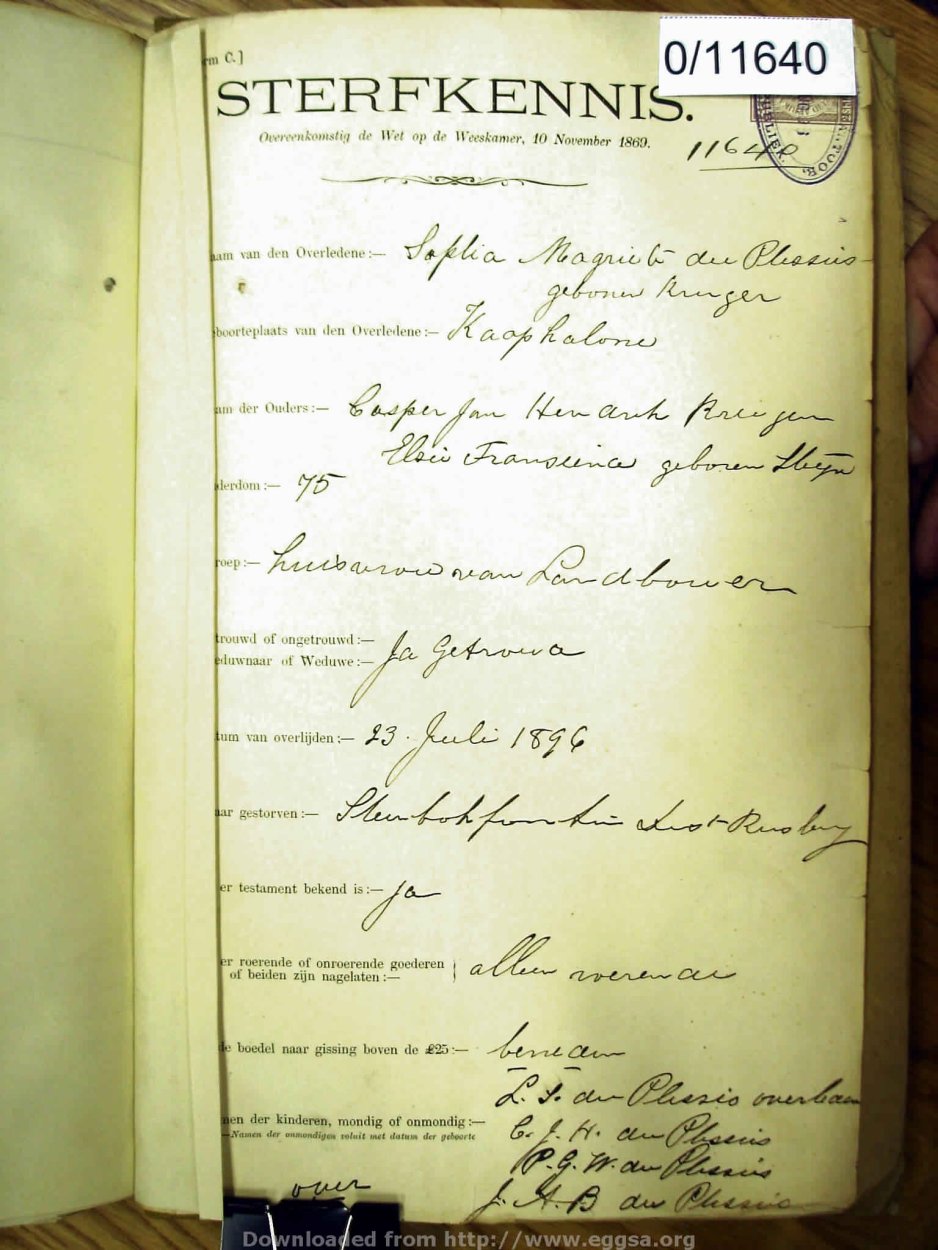 0/11640
rm C.]
STERFKENNIS.
Overeenkomstig de Wet op de Weeskamer, 10 November 1869.
11640
aam van den Overledene:— Sophia Magrieta du Plessis
geboren Kruger
boorteplaats van den Overledene:— Kaap kolonie
am der Ouders:— Casper Jan Hendrik Kruger
Elsie Fransiena geboren Steyn
derdom:— 75
roep:— huisvrow van Landbouwer
trouwd of ongetrouwd:—
eduwnaar of Weduwe:— Ja Getrouwd
tum van overlijden:— 23 Juli 1896
ar gestorven:— Steenbokfontein Dist Rusbrg
er testament bekend is:— Ja
er roerende of onroerende goederen
of beiden zijn nagelaten:— alleen roerende
de boedel naar gissing boven de £25:— beneden
L. S. du Plessis overleden
men der kinderen, mondig of onmondig:— C. J. H. du Plessis
—Namen der onmondigen voluit met datum der geboorte
P. G. W. du Plessis
over
J. A. B du Plessis
Downloaded from http://www.eggsa.org